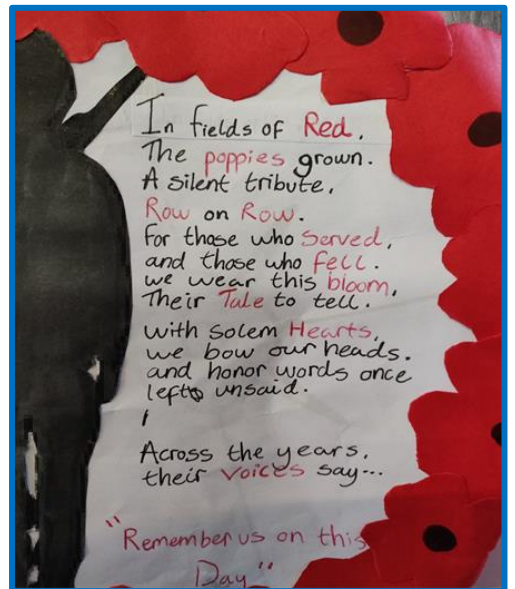 In fields of Red,
The poppies grown.
A silent tribute,
Row on Row.
For those who Served,
and those who fell.
we wear this bloom,
Their Tale to tell.
with solem Hearts,
we bow our heads.
and honor words once
left unsaid.
Across the years,
their voices say...
"Remember us on this
Day"